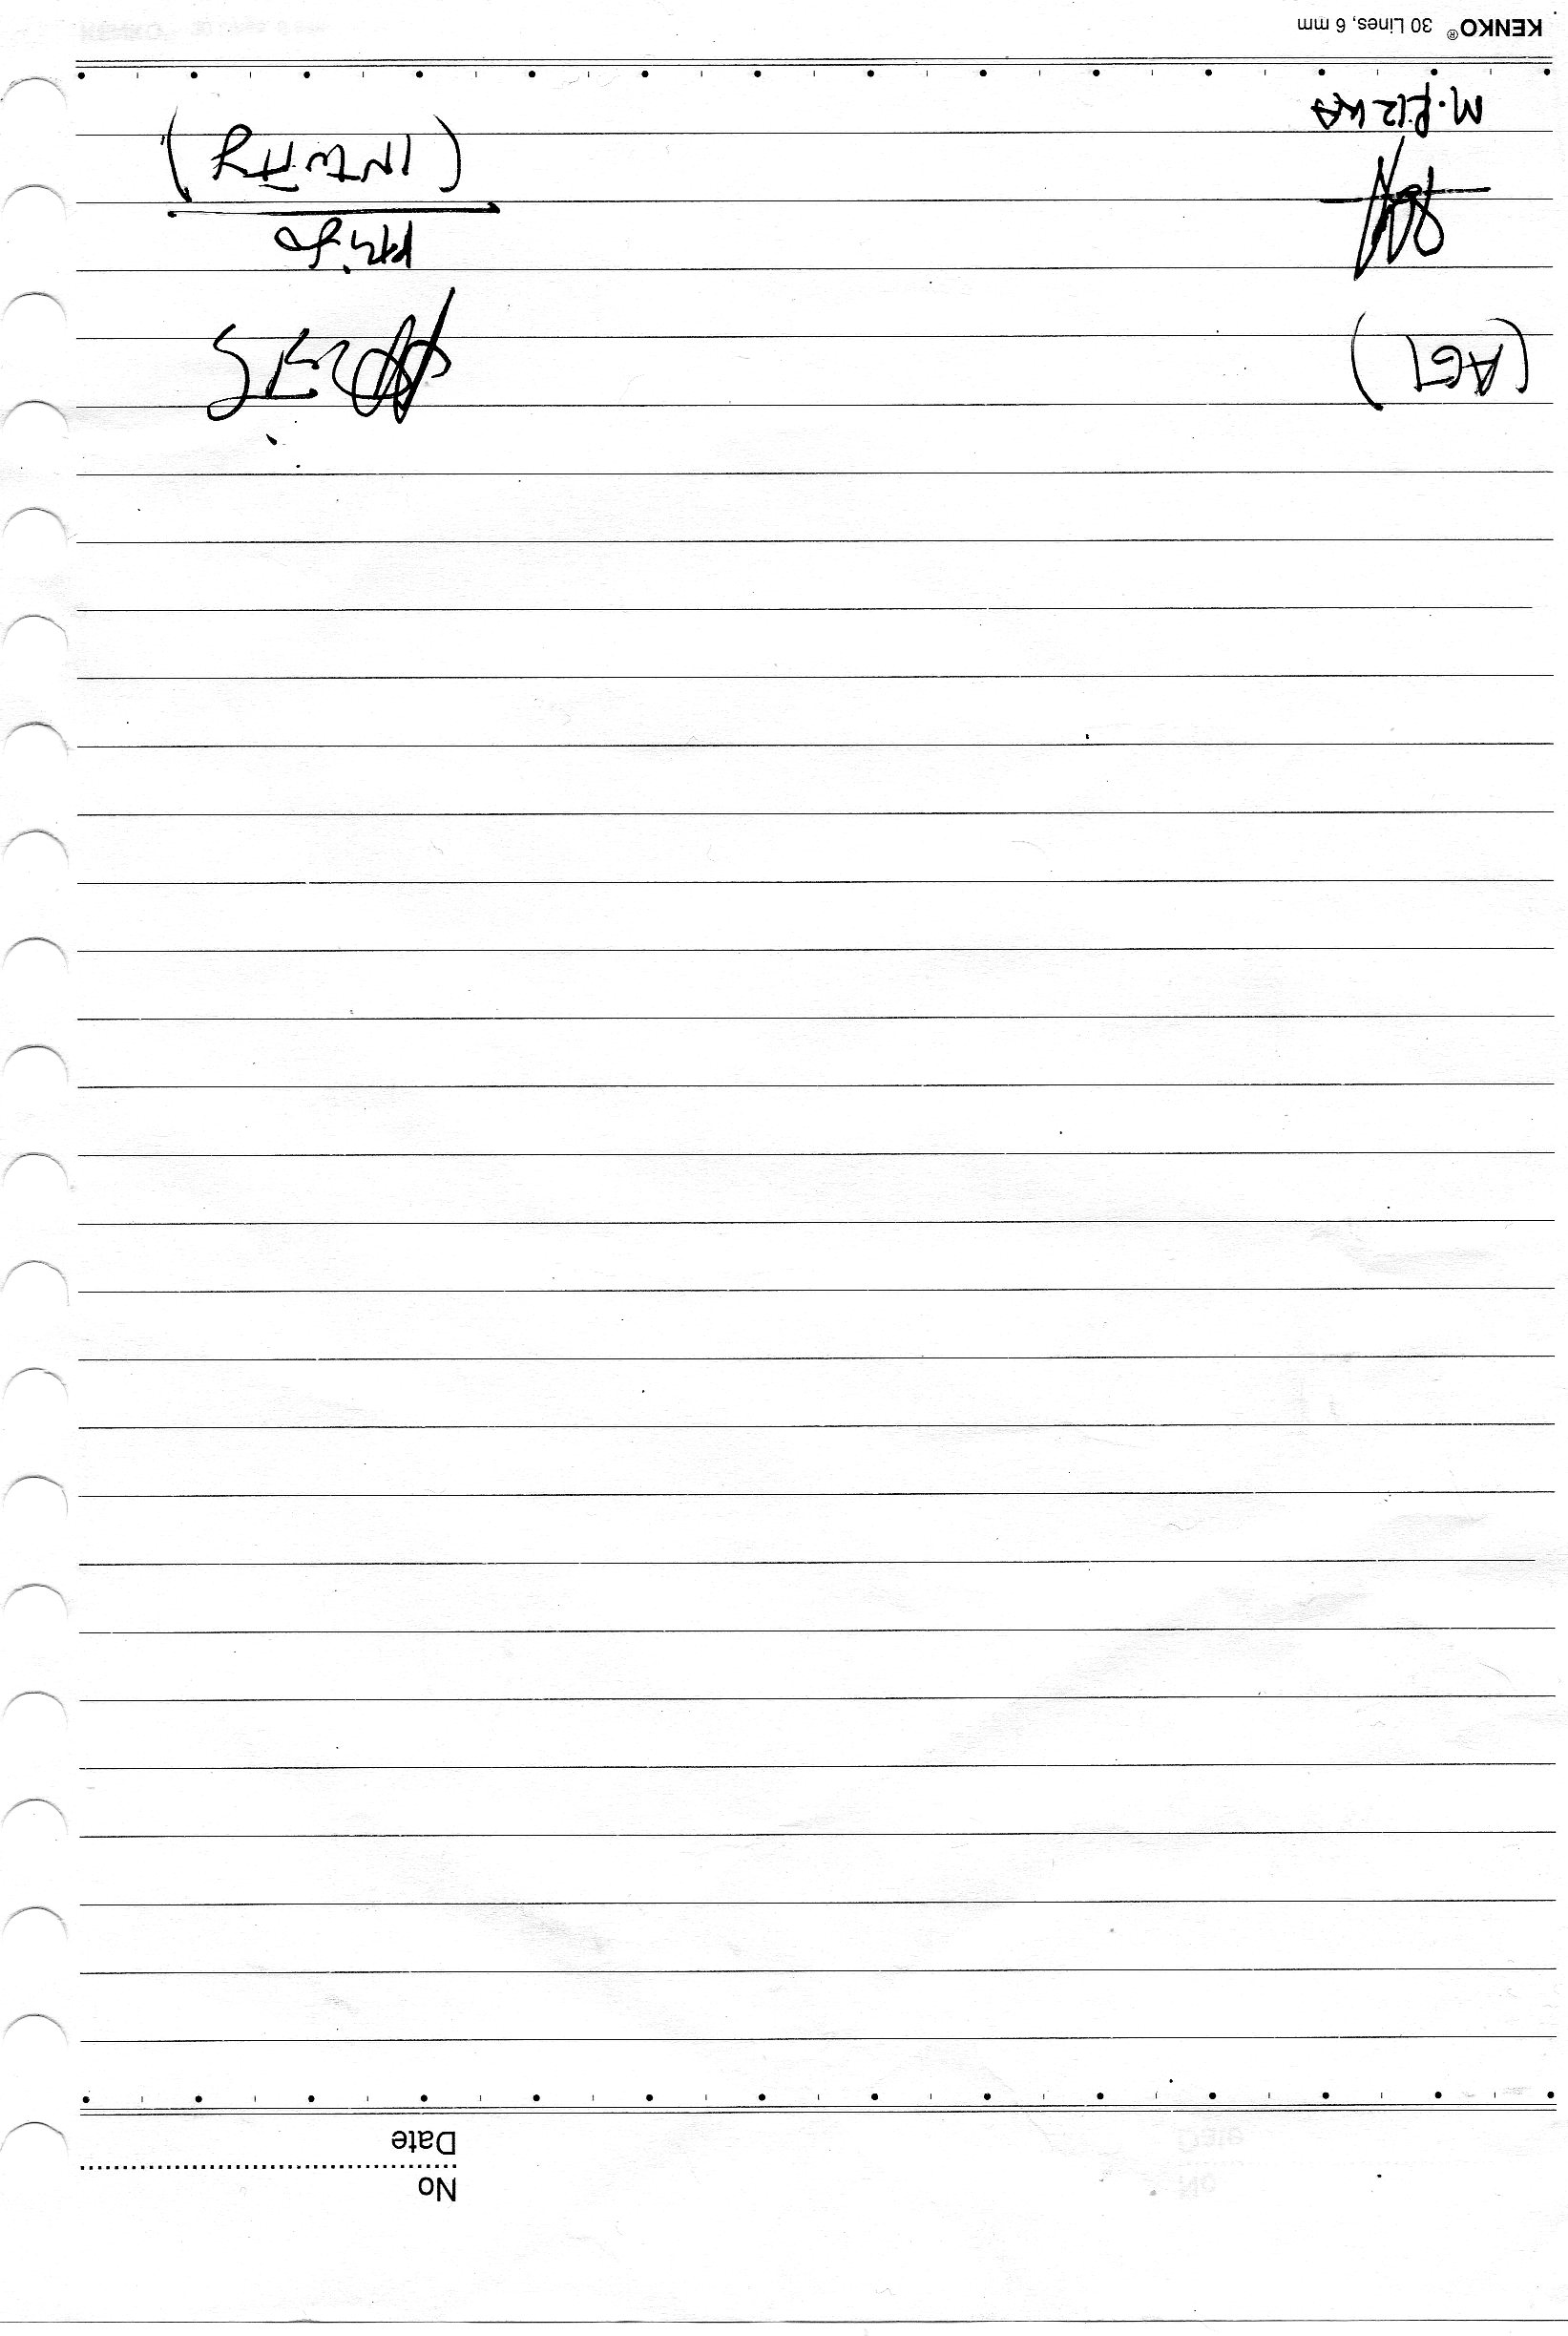 No
Date
(AGI)
M. RIZKA
(INTUITY)
KENKO® 30 Lines, 6 mm